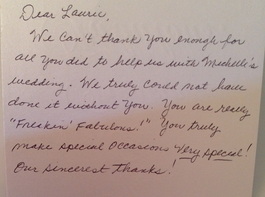 Dear Laurie,
We can't thank you enough for
all you did to help us with Michelle's
wedding. We truly could not have
done it without you. You are really
"Freakin' Fabulous!" You truly
make special occasions very special!
Our sincerest thanks!